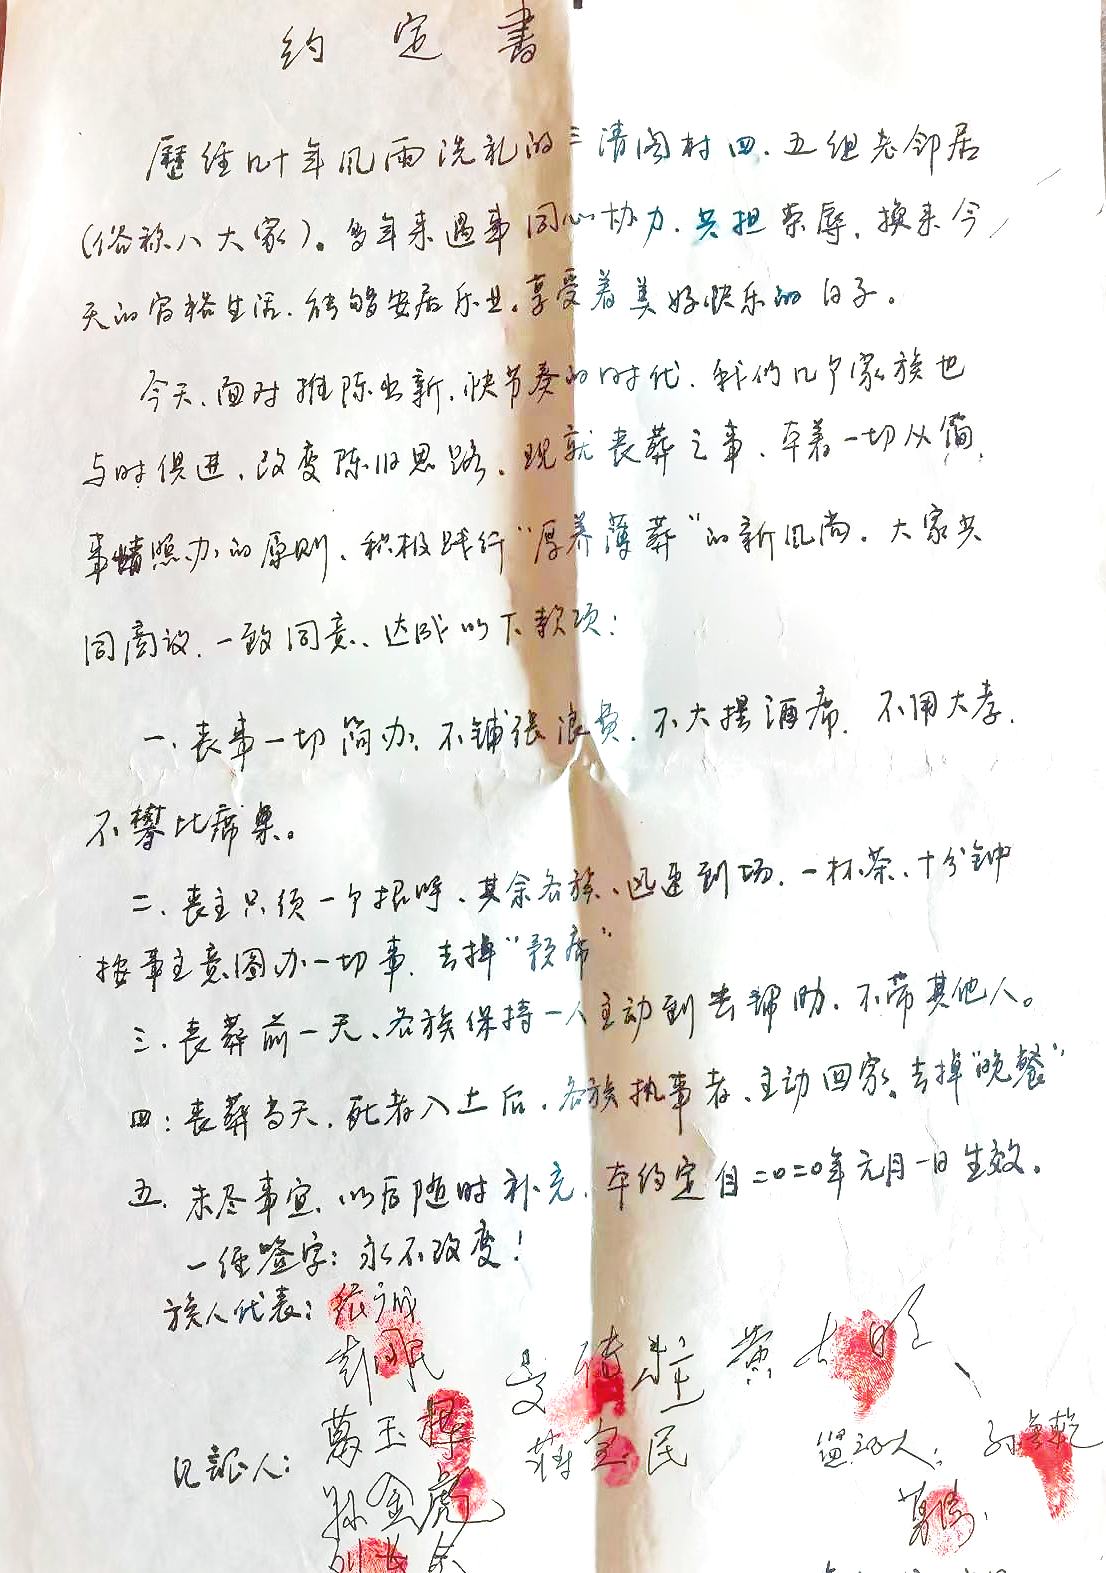 约定書
歷经几十年风雨洗礼的三清阁村四、五组老邻居
(俗称八大家)。多年来遇事同心协力、共担荣辱,换来今
天的富裕生活、能够安居乐业。享受着美好快乐的日子。
今天、面对推陈出新、快节奏的时代、我们几个家族也
与时俱进、改变陈旧思路、现就丧葬之事、本着一切从简、
事情照办的原则、积极践行“厚养薄葬”的新风尚。大家共
同商议、一致同意、达成以下款项:
一、丧事一切简办、不铺张浪费、不大摆酒席、不用大孝、
不攀比席桌。
二、丧主只须一个招呼、其余各族、迅速到场、一杯茶、十分钟
按事主意图办一切事、去掉“预席”
三、丧葬前一天、各族保持一人主动到去帮助、不带其他人。
四:丧葬当天、死者入土后、各族执事者、主动回家。去掉“晚餐”
五、未尽事宜、以后随时补充、本约定自二0二0年元月一日生效。
一经签字:永不改变!
族人代表:
黄大旺
葛玉
民
见証人:
孙金虎